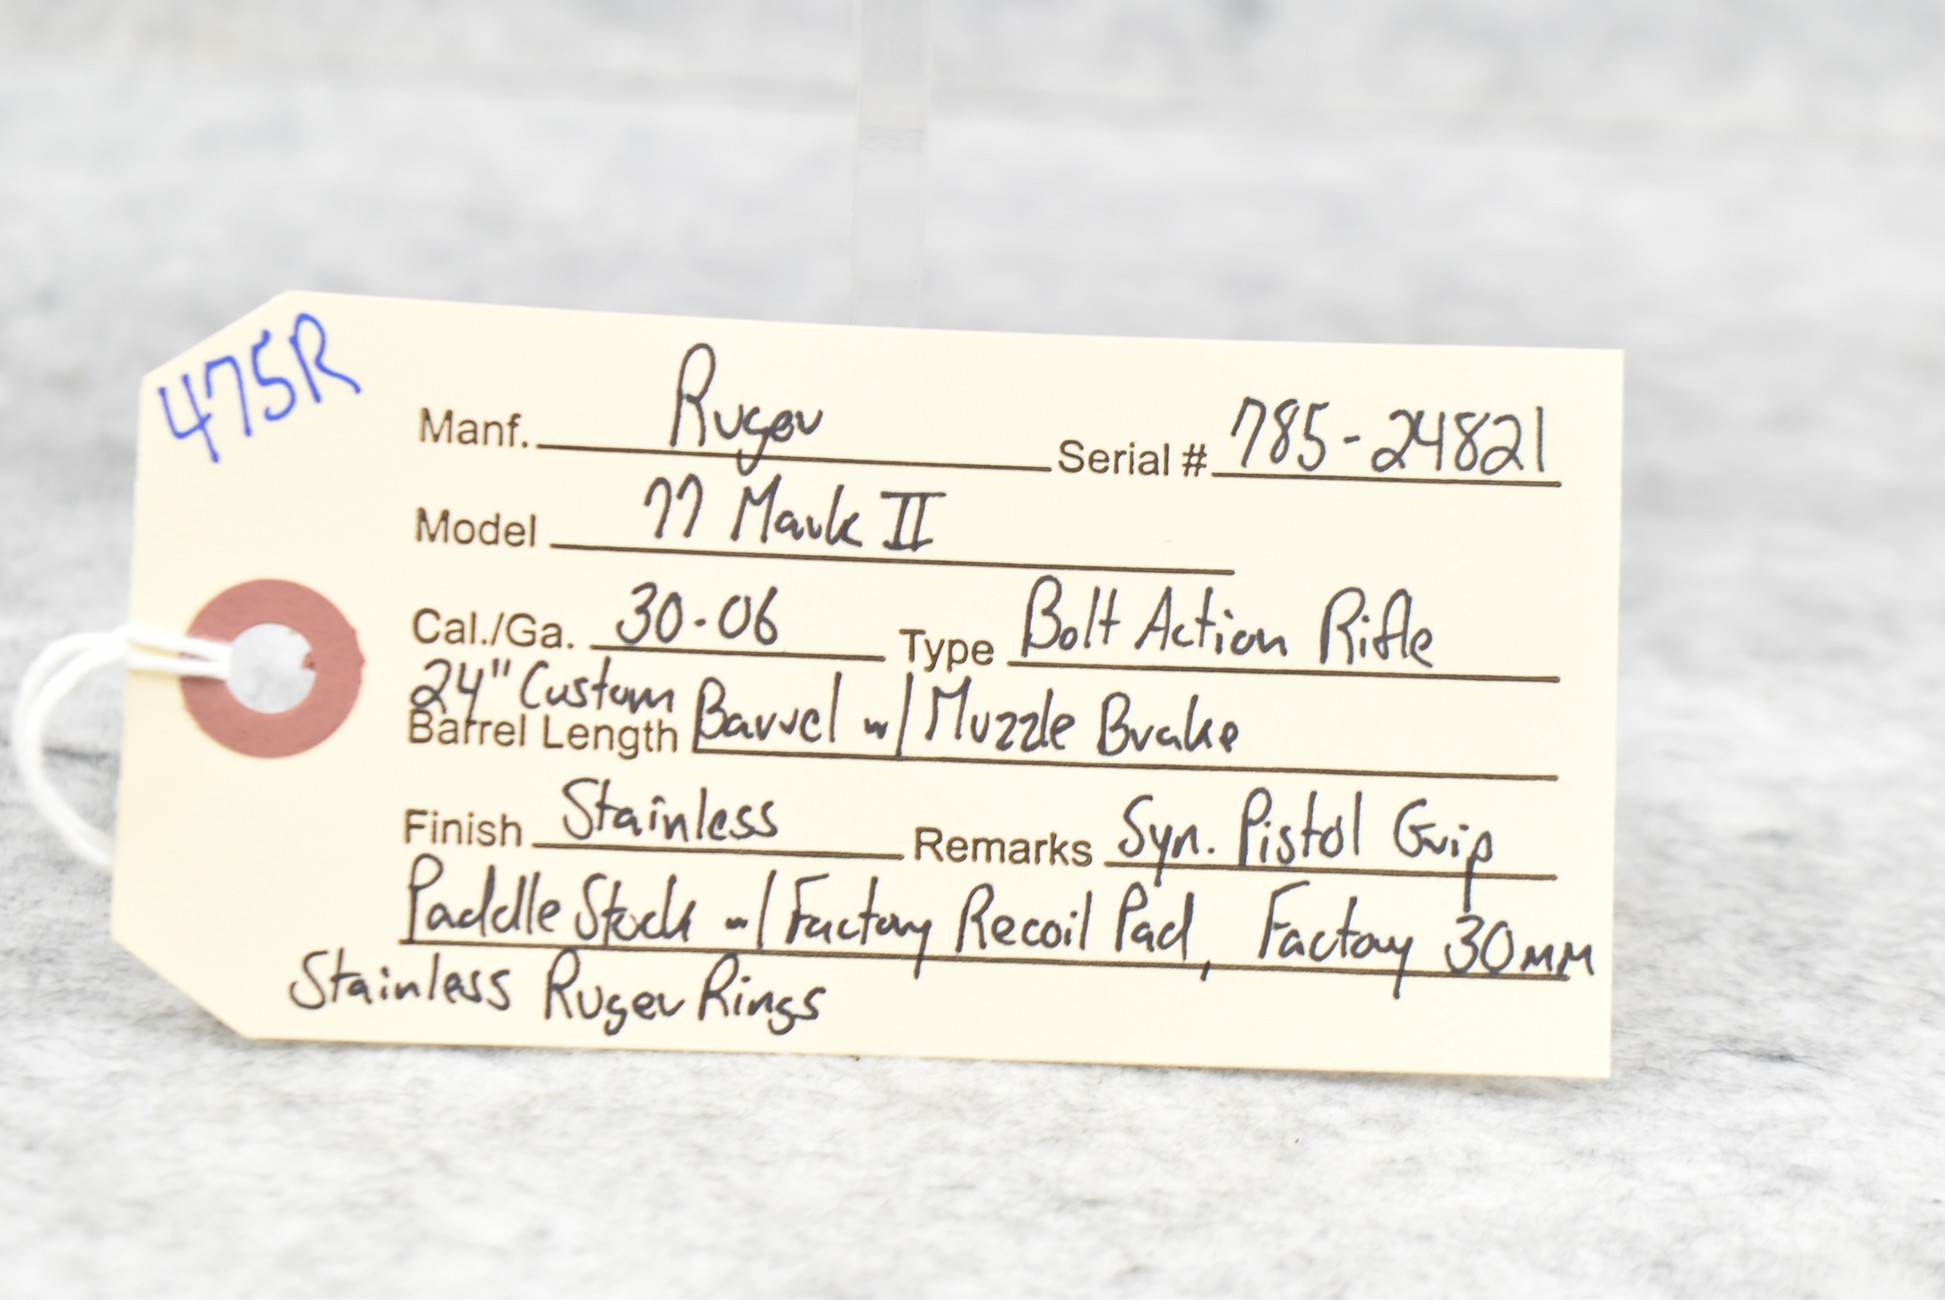 475R
Manf. Ruger Serial # 785-24821
Model 77 Mark II
Cal./Ga. 30-06 Type Bolt Action Rifle
24" Custom
Barrel Length Barrel w/ Muzzle Brake
Finish Stainless Remarks Syn. Pistol Grip
Paddle Stock w/ Factory Recoil Pad, Factory 30mm
Stainless Ruger Rings